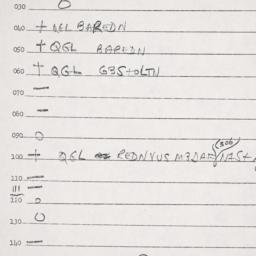 030 O
040 + QGL BAREDN
050 + QGL BAREDN
060 + QGL G3S+OLTN
070 —
080 —
090 O
100 + QGL REDNVUS M3DA
110 —
111 —
120 O
130 O
140 —